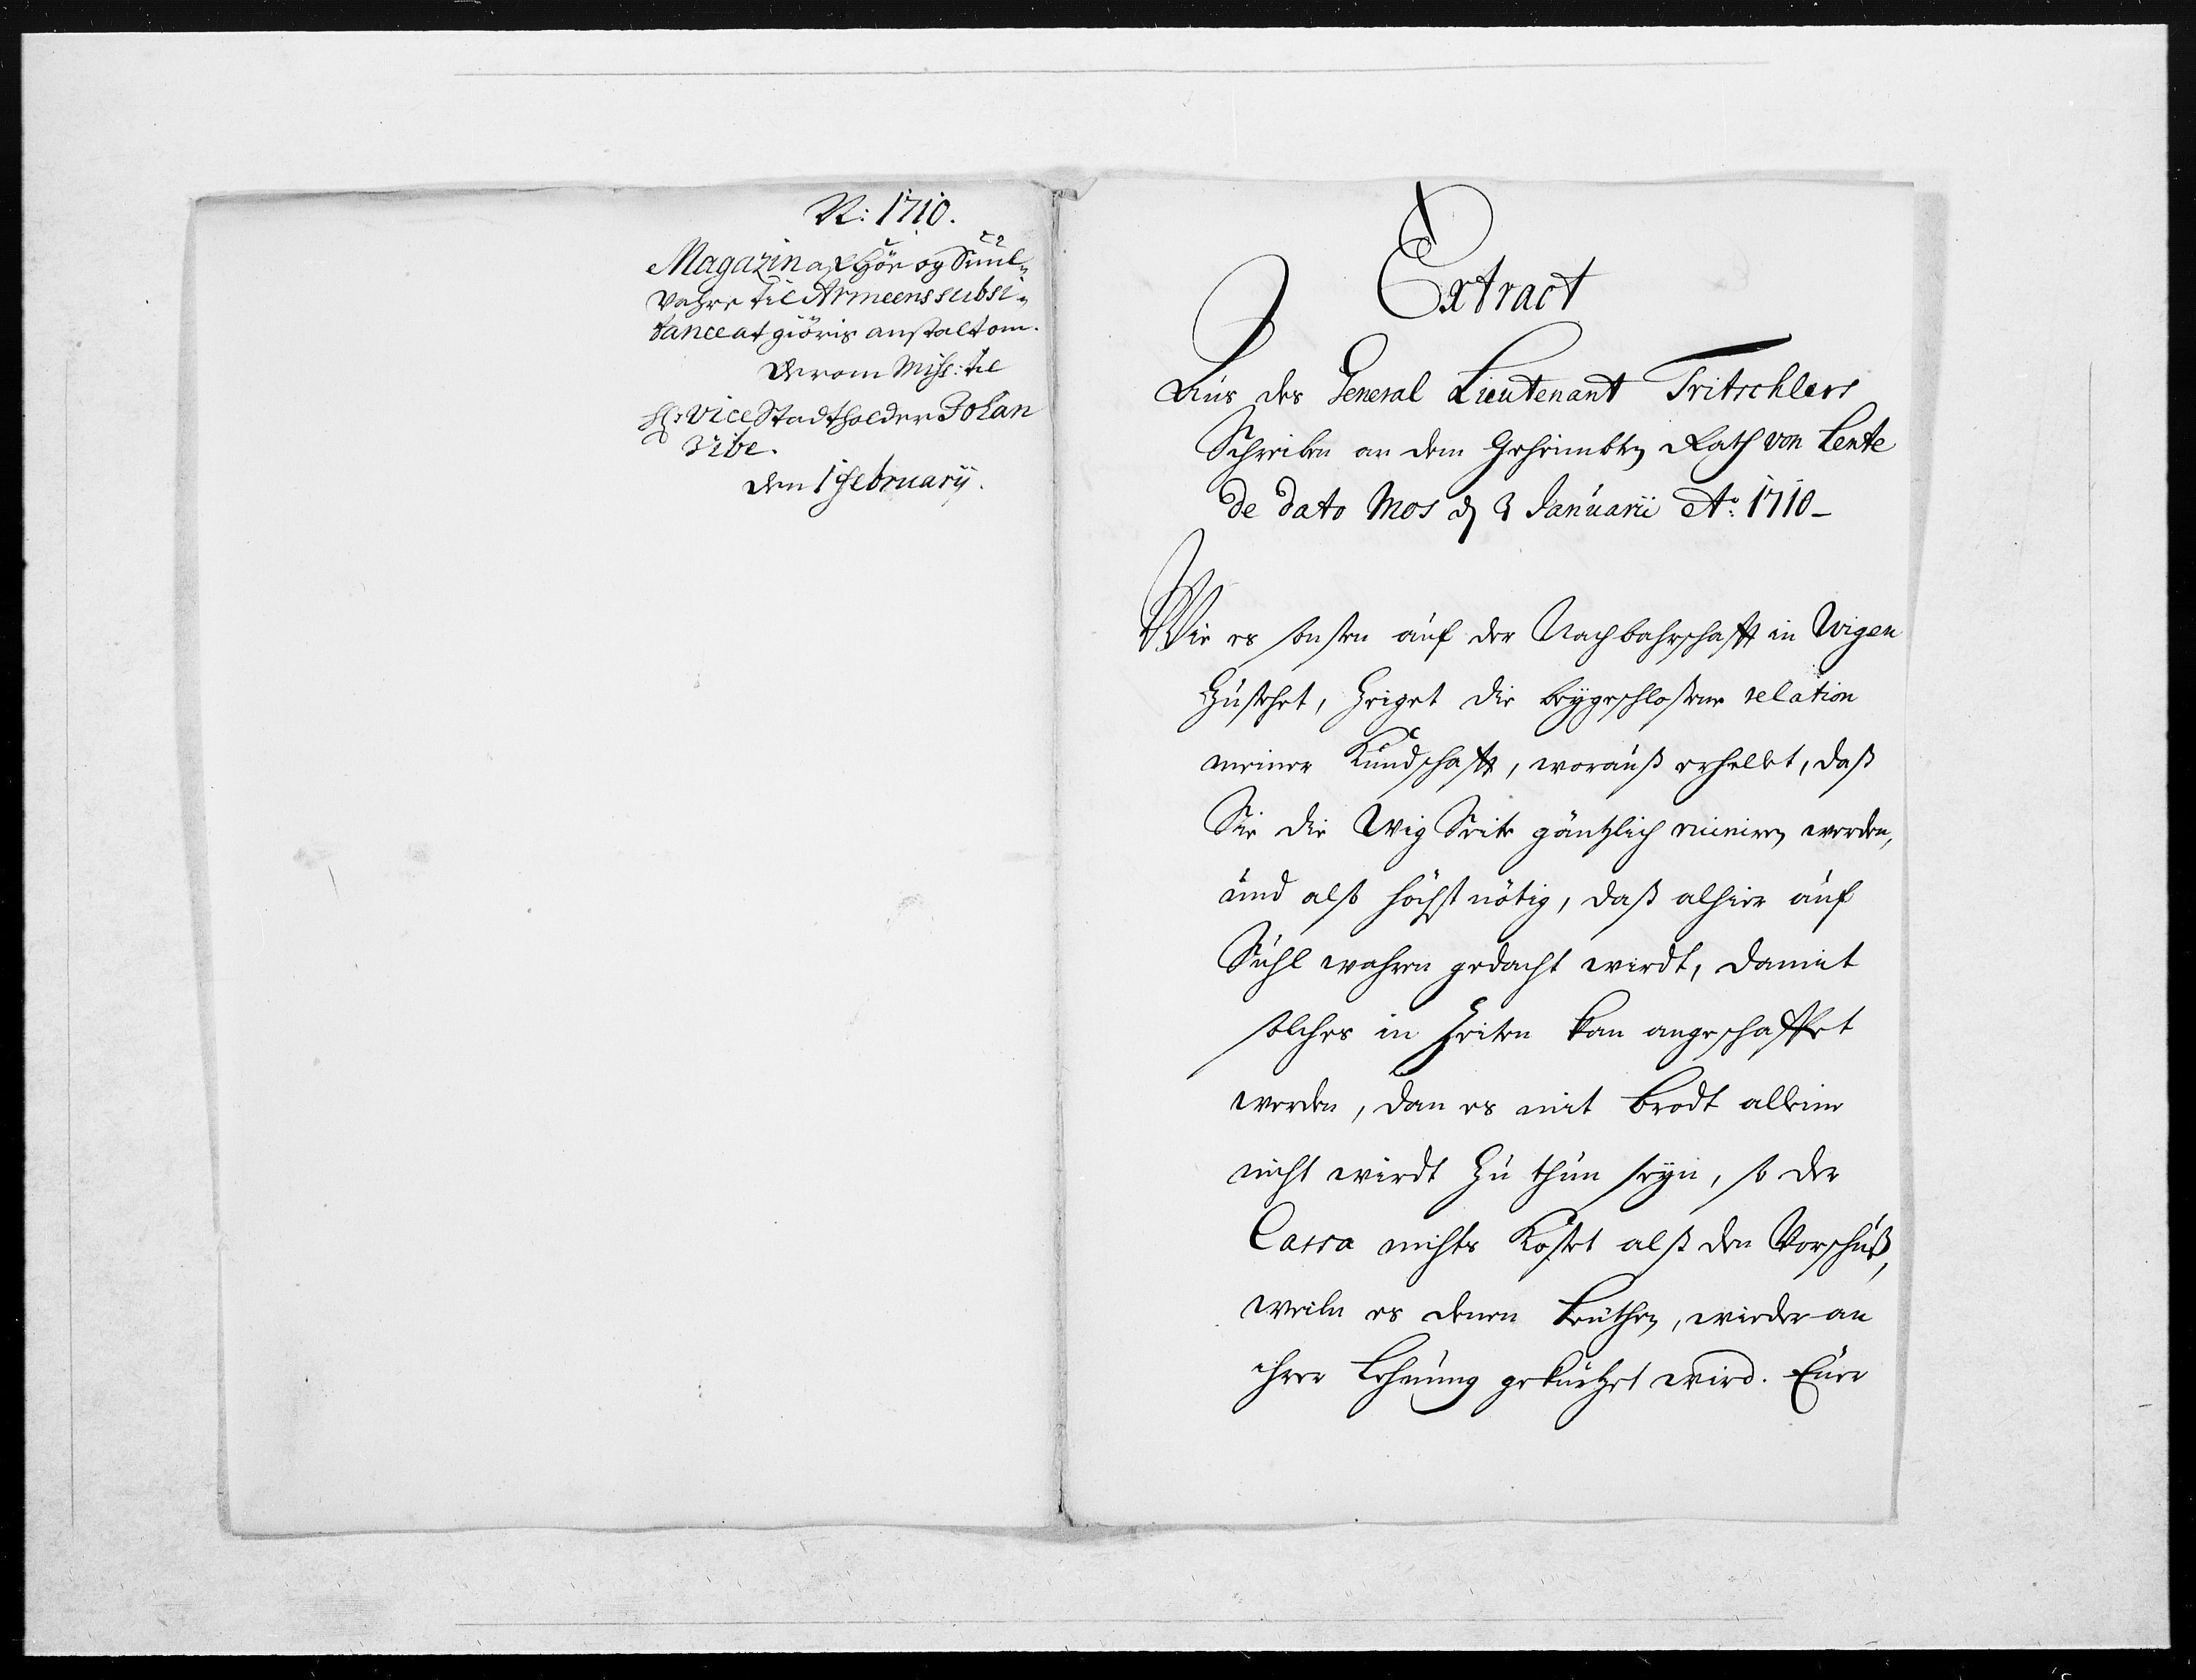 N: 1710.
Magazin af Hör og Suul-
vahre til Armeens subsi-
tance at giöris anstalt om.
Derom Miss: til
Hr: Vice Stadtholder Johan
Vibe.
den 1 february.
Extract
Aus des General Lieutenant Tritschlers
Schreiben an dem Geheimbten Rath von Lente
de dato Mos d 3 Januarii Ao: 1710_
Wie es sonsten auf der Nachbahrschafft in Wigen
Zustehet, Zeiget die beygeschlossene relation
meiner Kundschafft, worauß erhellet, daß
Sie die Wig Seite gäntzlich ruiniren werden,
und also höchst nötig, daß alhier auf
Suhl wahren gedacht wirdt, damit
solches in Zeiten kan angeschaffet
werden, dan es mit brodt alleine
nicht wirdt Zu thun seyn, so der
Cassa nichts Kostet alß den Vorschuß,
weiln es denen Leuthen, wieder an
ihrer Lehnung gekürtzet wird. Eure